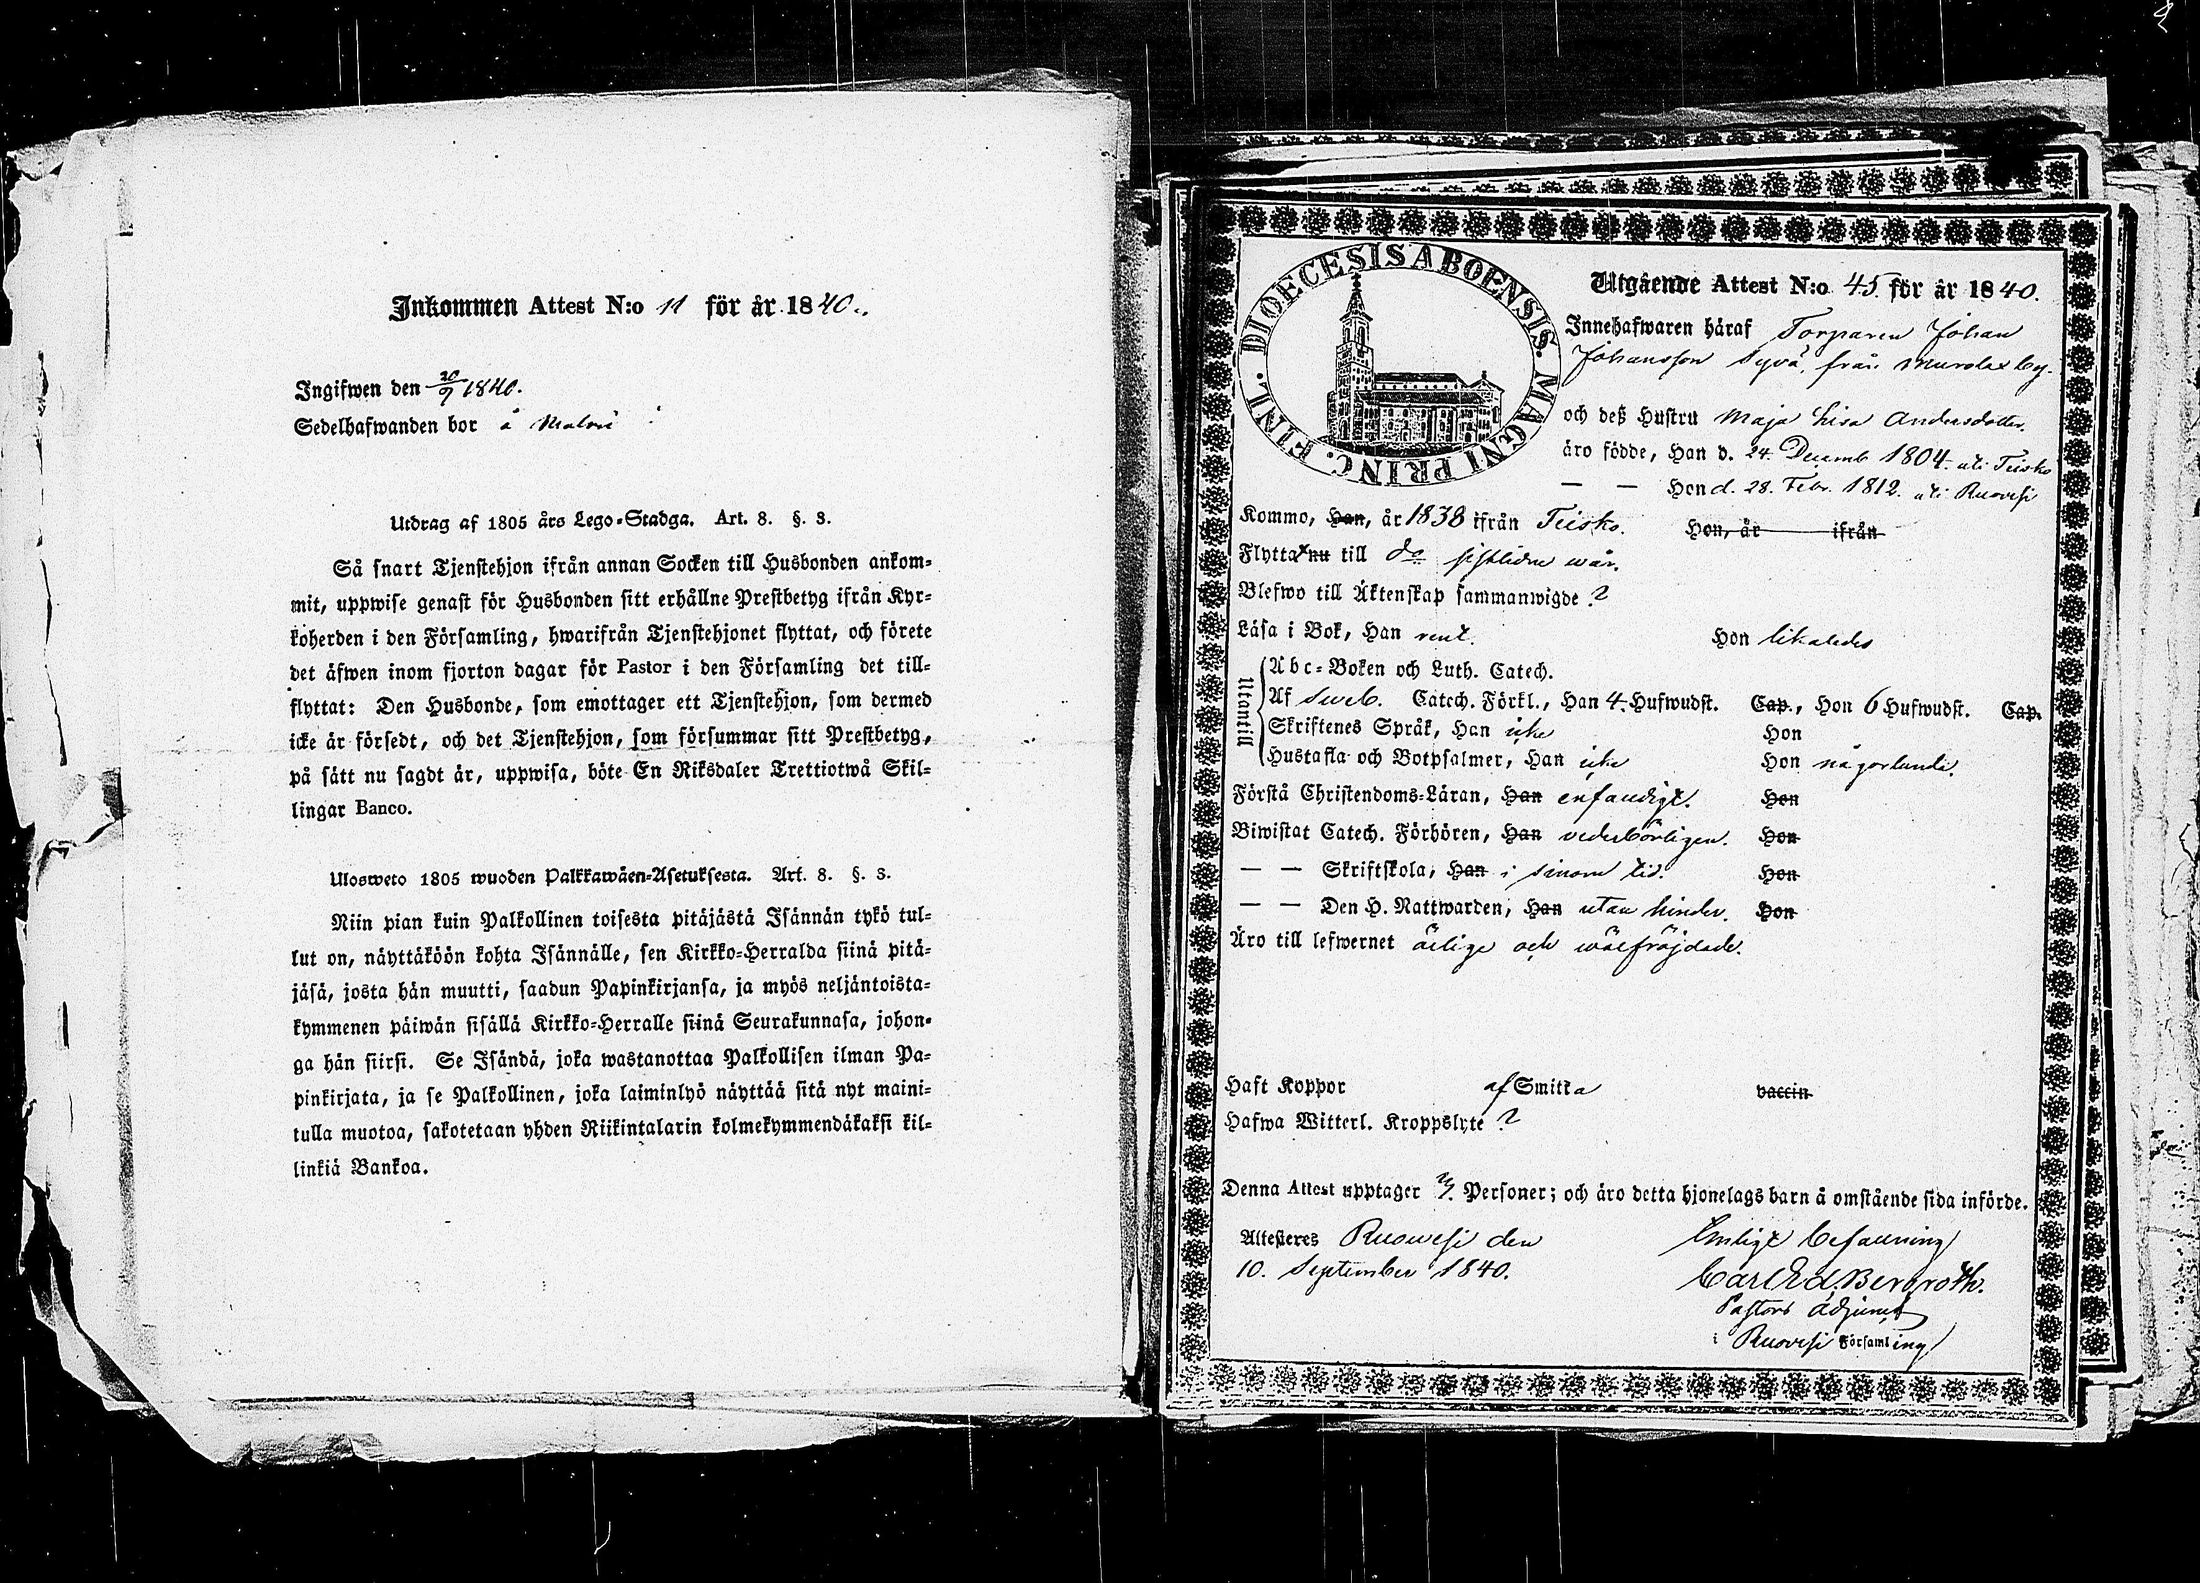 Inkommen Attest N:o 11 för år 1840.
Ingifwen den 20/9 1840.
Sedelhafwanden bor å
Utdrag af 1805 års Lego-Stadga. Art. 8. §. 3.
Så snart Tjenstehjon ifrån annan Socken till Husbonden ankom-
mit, uppwise genast för Husbonden sitt erhållne Prestbetyg ifrån Kyr-
koherden i den Församling, hwarifrån Tjenstehjonet flyttat, och förete
det äfwen inom fjorton dagar för Pastor i den Församling det till-
flyttat: Den Husbonde, som emottager ett Tjenstehjon, som dermed
icke är försedt, och det Tjenstehjon, som försummar sitt Prestbetyg,
på sätt nu sagdt är, uppwisa, böte En Riksdaler Trettiotwå Skil-
lingar Banco.
Ulosweto 1805 wuoden Palkkawäen-Asetuksesta. Art. 8. §. 3.
Niin pian kuin Palkollinen toisesta pitäjästä Isännän tykö tul-
lut on, näyttäköön kohta Isännälle, sen Kirkko-Herralda siinä pitä-
jäsä, josta hän muutti, saadun Papinkirjansa, ja myös neljäntoista-
kymmenen päiwän sisällä Kirkko-Herralle siinä Seurakunnasa, johon-
ga hän siirsi. Se Isändä, joka wastanottaa Palkollisen ilman Pa-
pinkirjata, ja se Palkollinen, joka laiminlyö näyttää sitä nyt maini-
tulla muotoa, sakotetaan yhden Riikintalarin kolmekymmendäkaksi kil-
linkiä Bankoa.
DIOECESIS ABOENSIS. MAGNI PRINC. FINL.
Utgående Attest N:o 45. för år 1840.
Innehafwaren häraf Torparen Johan
Johansson Syvä, från Murolax by.
och deß Hustru Maja Lisa Andersdotter.
äro födde, Han d. 24. Decemb 1804. uti Teisko
— — Hon d. 28. Febr. 1812. uti Ruovesi
Kommo, Han, år 1838 ifrån Teisko. Hon, år ifrån
Flytta nu till do sistlidne wår.
Blefwo till Äktenskap sammanwigde ?
Läsa i Bok, Han rent. Hon likaledes
Utantill
Abc-Boken och Luth. Catech.
Af Sveb. Catech. Förkl., Han 4. Hufwudst. Cap., Hon 6 Hufwudst. Cap.
Skriftenes Språk, Han icke Hon
Hustafla och Botpsalmer, Han icke Hon någorlunda.
Förstå Christendoms-Läran, Han enfaldigt. Hon
Biwistat Catech. Förhören, Han vederbörligen. Hon
— — Skriftskola, Han i sinom tid. Hon
— — Den H. Nattwarden, Han utan hinder. Hon
Äro till lefwernet ärlige och wälfräjdade.
Haft Koppor af Smitta vaccin
Hafwa Witterl. Kroppslyte ?
Denna Attest upptager Personer; och äro detta hjonelags barn å omstående sida införde.
Attesteres Ruowesi den
10. September 1840.
Enligt befallning
Carl Ed. Bergroth.
Pastors adjunct
i Ruovesi Församling